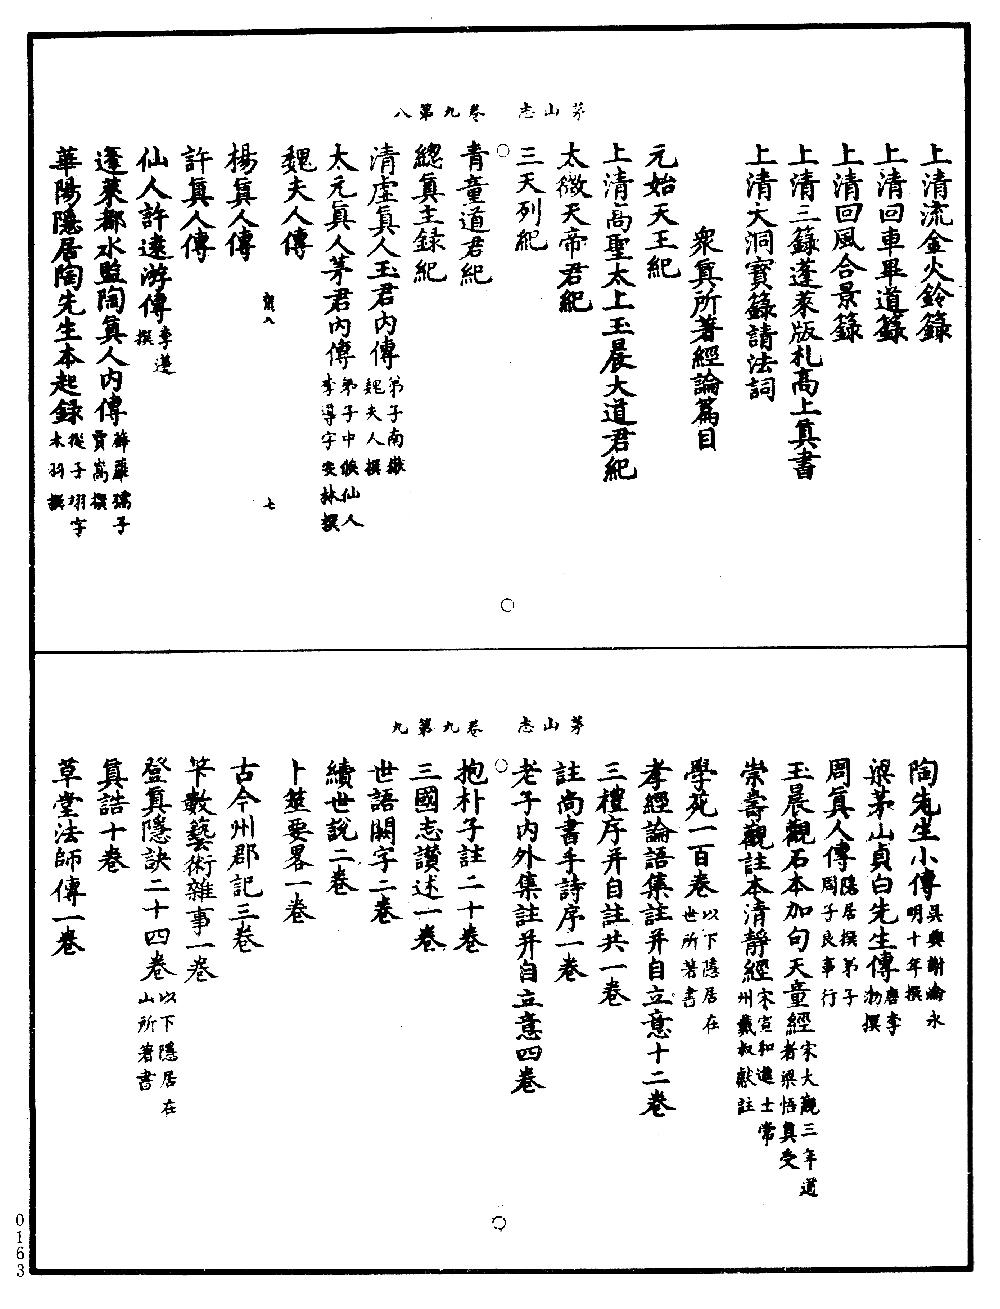 茅山志　卷九第八
上清流金火鈴籙
上清回車畢道籙
上清回風合景籙
上清三籙蓬萊版札高上眞書
上清大洞寶籙請法詞
衆眞所著經論篇目
元始天王紀
上清高聖太上玉晨大道君紀
太微天帝君紀
三天列紀
青童道君紀
總眞主録紀
清虛眞人王君内傳弟子南嶽魏夫人撰
太元眞人茅君内傳弟子中候仙人李遵字安林撰
魏夫人傳
七
楊眞人傳
許眞人傳
仙人許遠游傳李遵撰
蓬萊都水監陶眞人内傳薜蘿孺子賈嵩撰
華陽隱居陶先生本起録從子翊字木羽撰
茅山志　卷九第九
陶先生小傳吳興謝瀹永明十年撰
梁茅山貞白先生傳唐李渤撰
周眞人傳隱居撰弟子周子良事行
玉晨觀石本加句天童經宋大觀三年道者梁悟眞受
崇壽觀註本清靜經宋宣和進士常州戴叔獻註
學苑一百卷以下隱居在世所著書
孝經論語集註并自立意十二卷
三禮序并自註共一卷
註尚書手詩序一卷
老子内外集註并自立意四卷
抱朴子註二十卷
三國志讚述一卷
世語闕字二卷
續世說二卷
卜筮要畧一卷
古今州郡記三卷
筭數藝術雜事一卷
登眞隱訣二十四卷以下隱居在山所著書
眞誥十卷
草堂法師傳一卷
0163